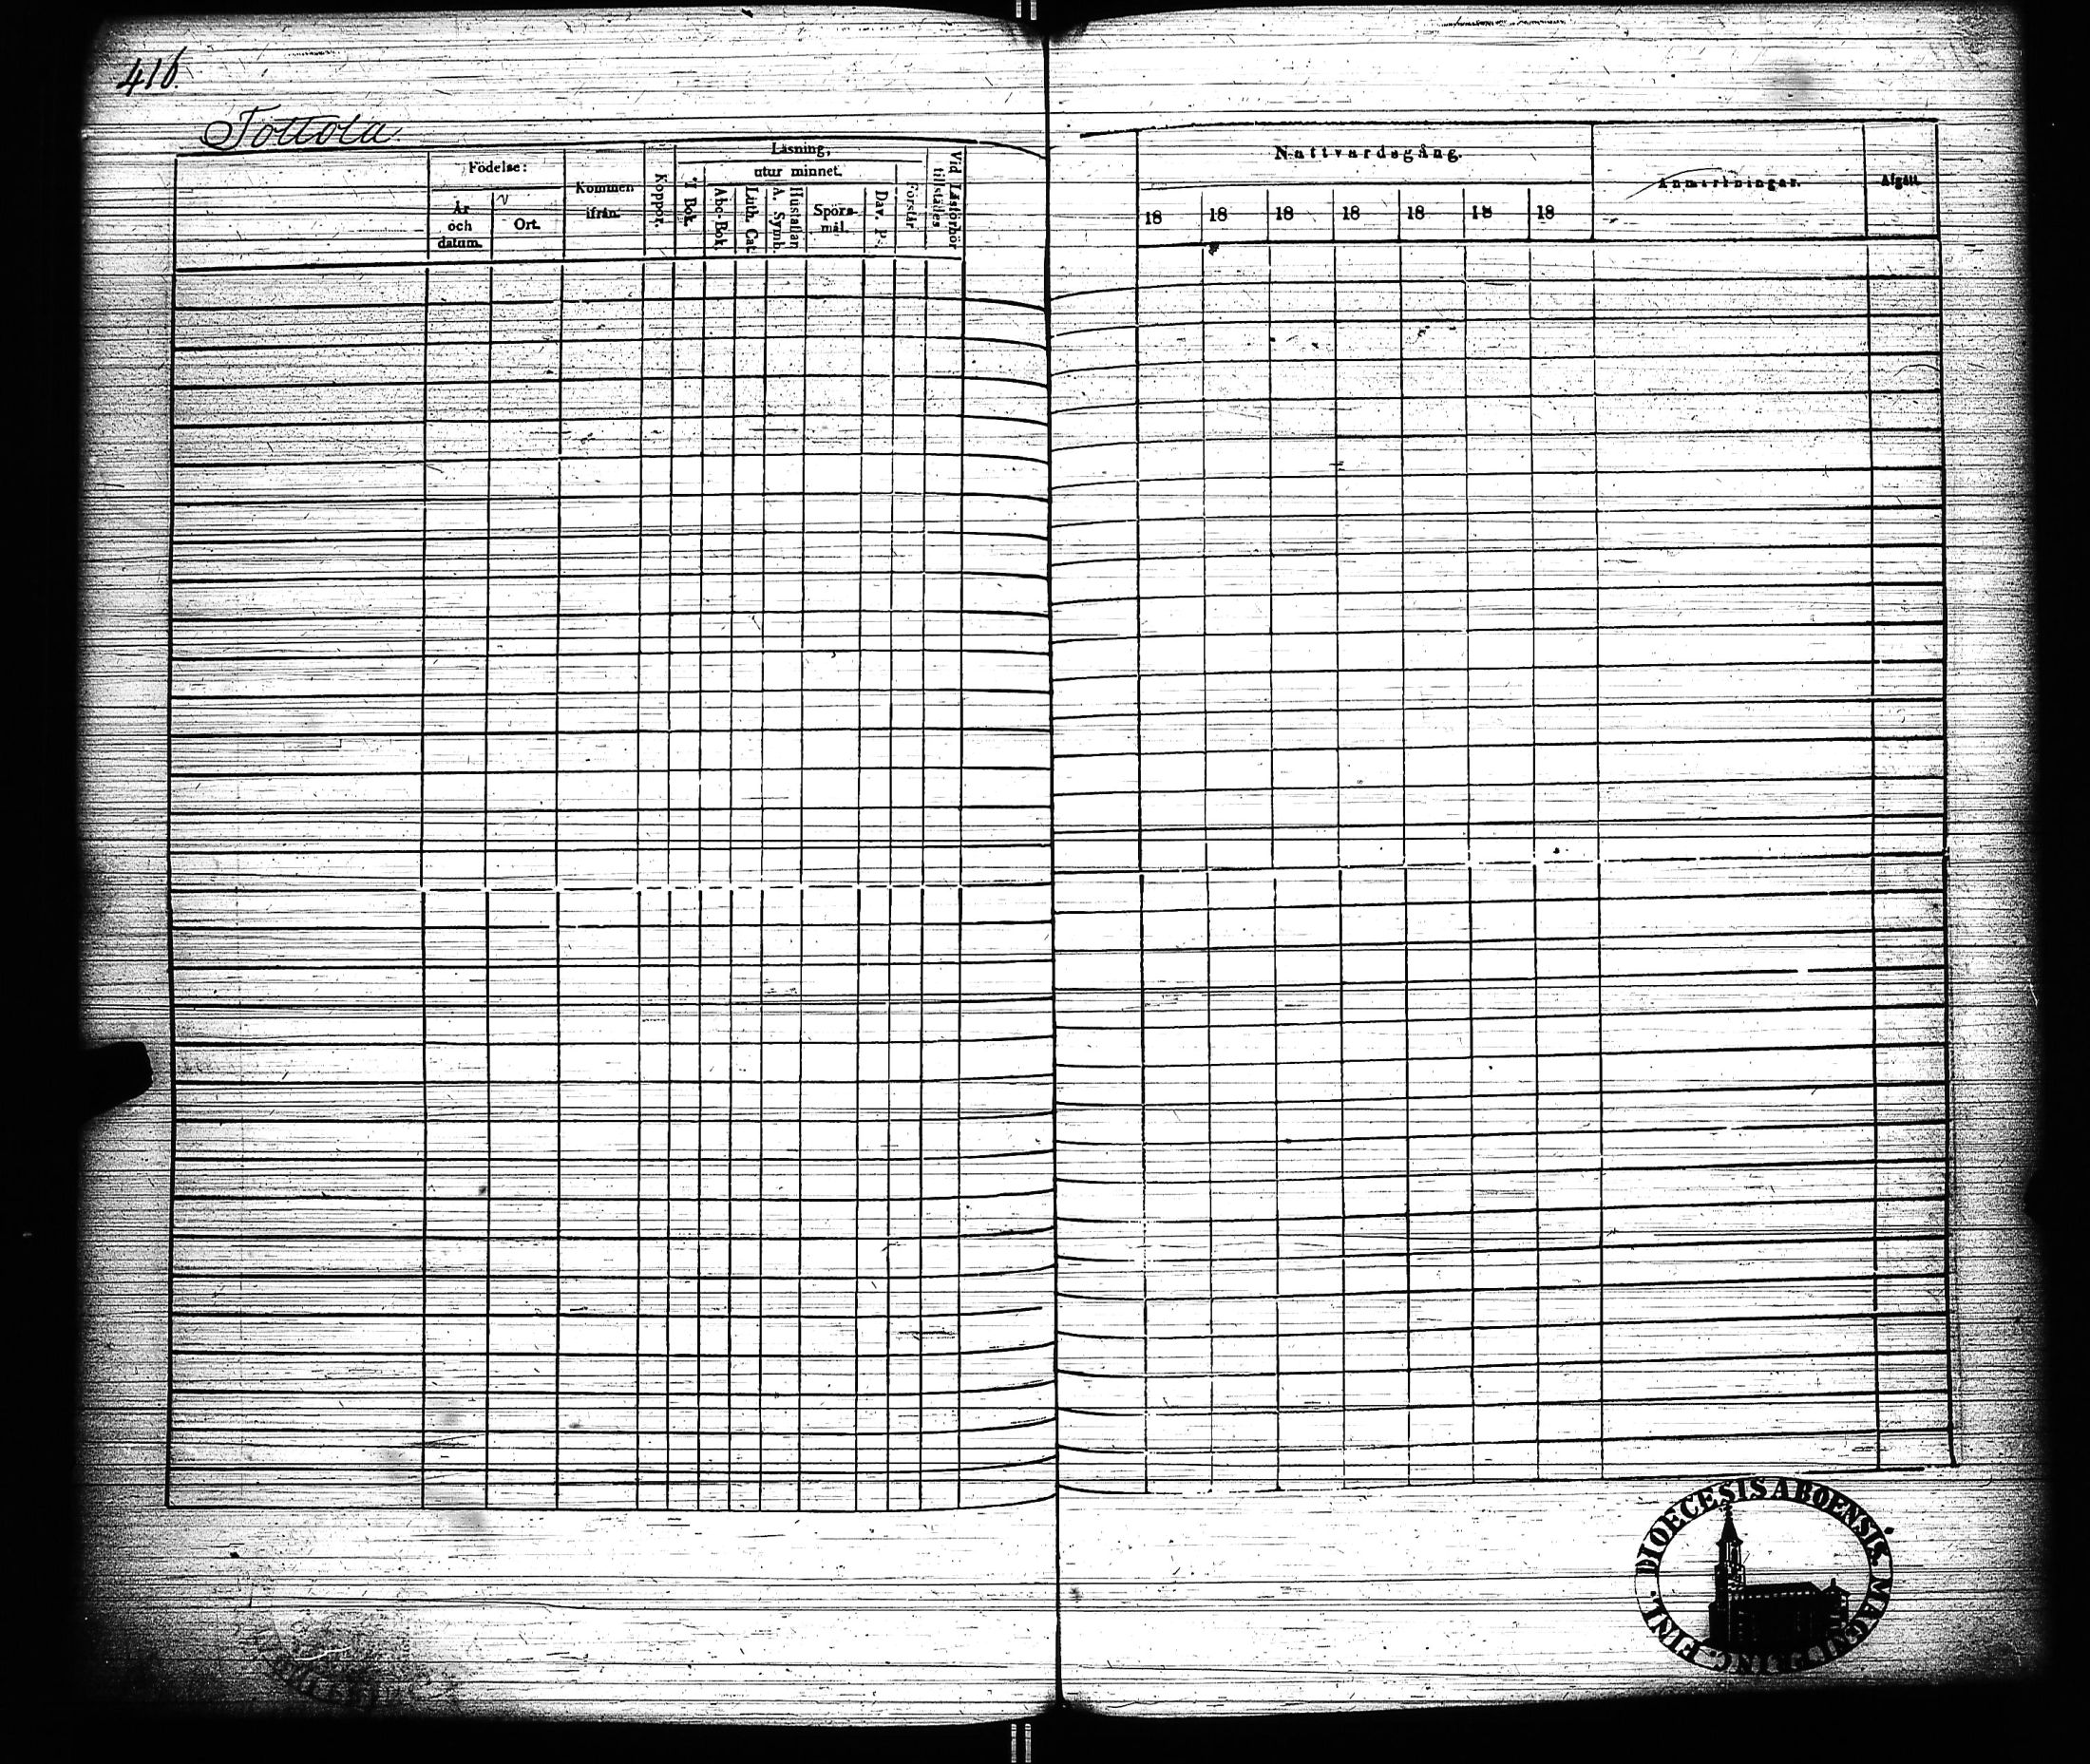 416.
Tottola
Födelse:
År och datum.
Ort.
Kommen ifrån.
Koppor.
Läsning,
I Bok.
utur minnet.
Abc-Bok.
Luth. Cat.
Hustaflan A. Symb.
Spörsmål.
Dav. Ps.
Förstår
Vid Läsförhör tillstädes
Nattvardsgång.
18 18 18 18 18 18 18
Anmärkningar.
Afgått.
DIOECESIS ABOENSIS. MAGNI PRINC. FINL.